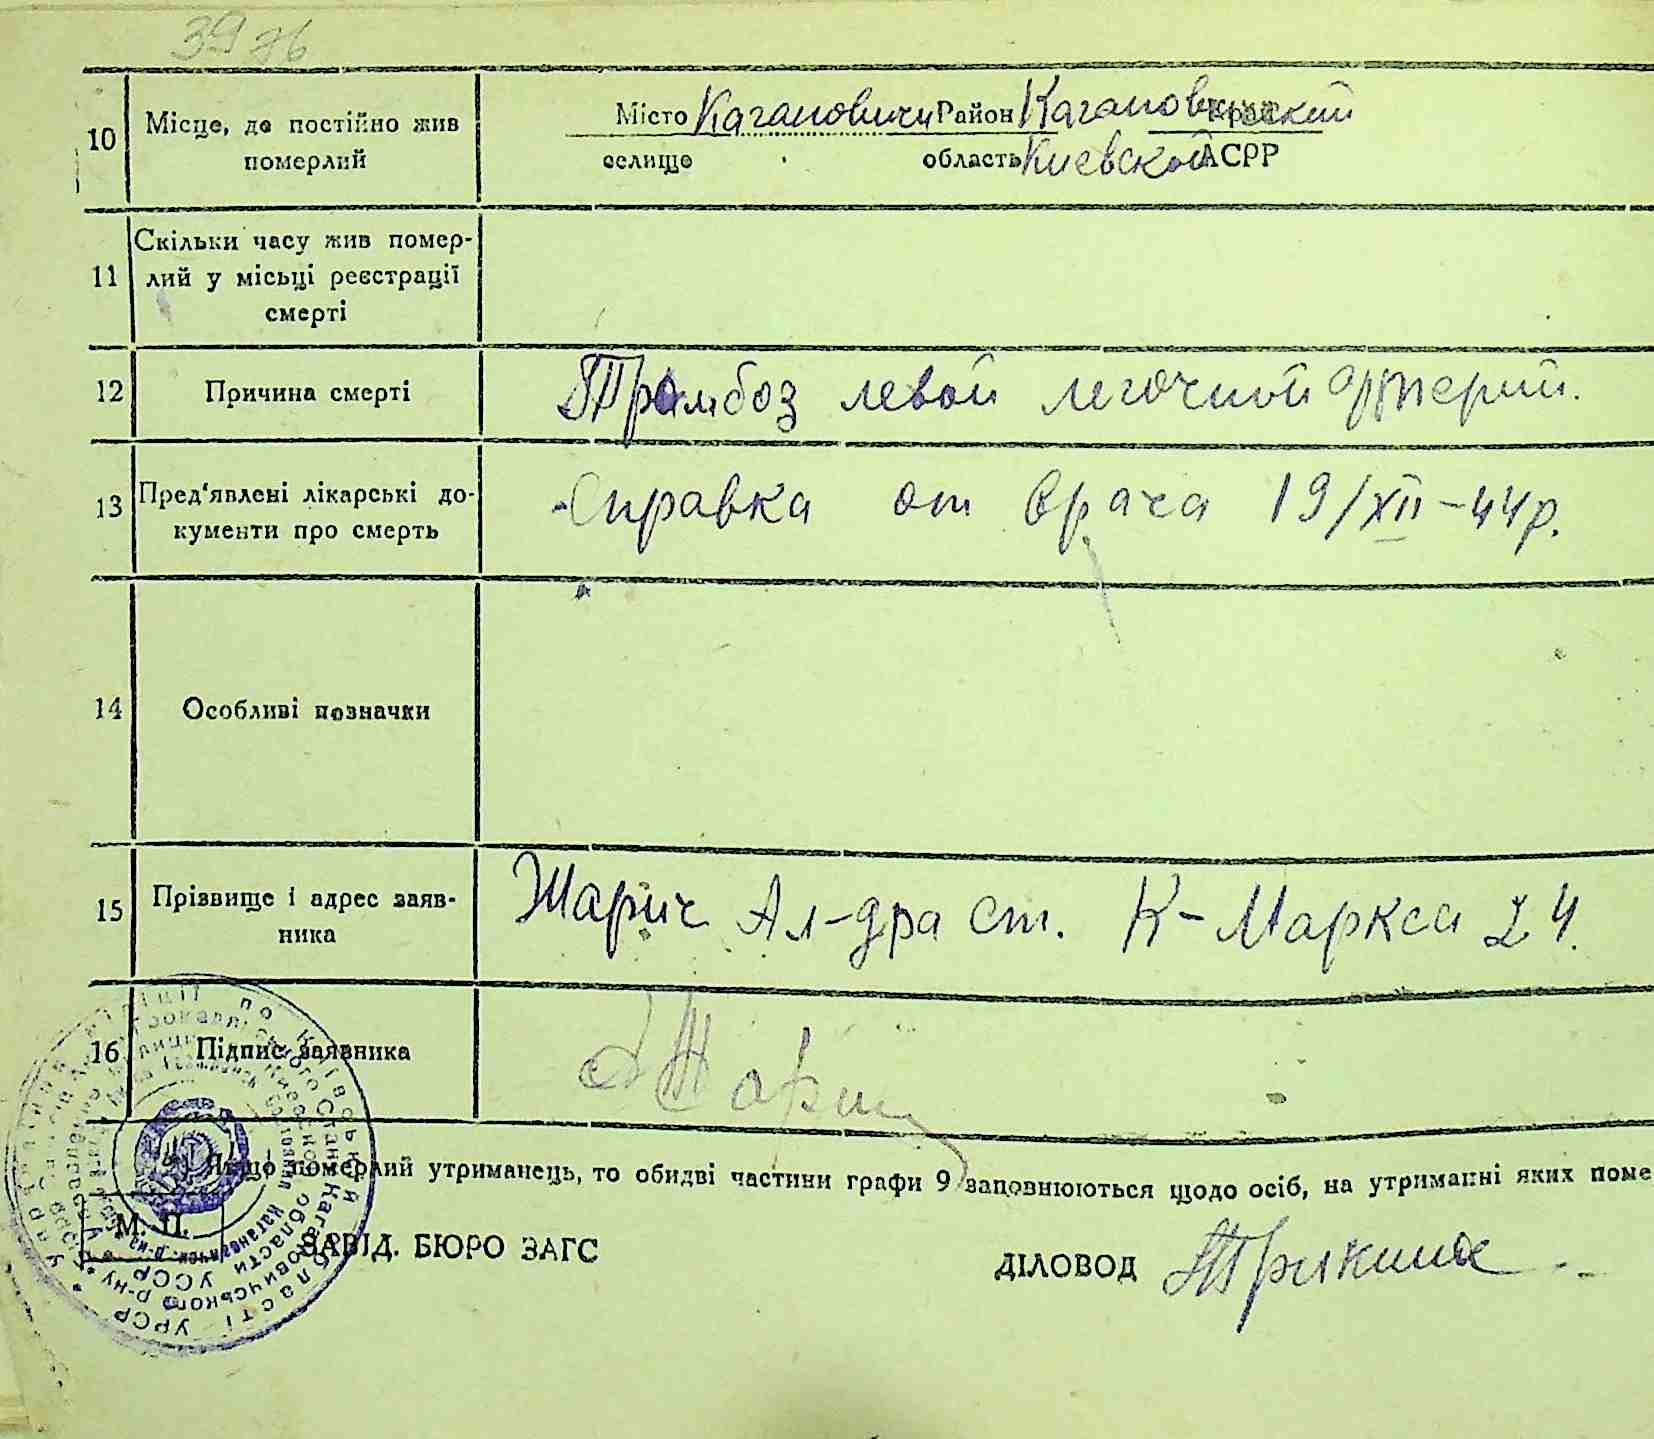 39 зв
10 Місце, де постійно жив померлий
Місто Кагановичи Район Кагановический Край
селище область Киевской АСРР
11 Скільки часу жив помер-
лий у місьці реєстрації
смерті
12 Причина смерті
Тромбоз левой легочной Артерии.
13 Пред'явлені лікарські до-
кументи про смерть
Справка от врача 19/XII-44р.
14 Особливі позначки
15 Прізвище і адрес заяв-
ника
Жарич Ал-дра ст. К-Маркса 24.
16 Підпис заявника
Якщо померлий утриманець, то обидві частини графи 9 заповнюються щодо осіб, на утриманні яких поме
М. П.
ЗАВІД. БЮРО ЗАГС
ДІЛОВОД